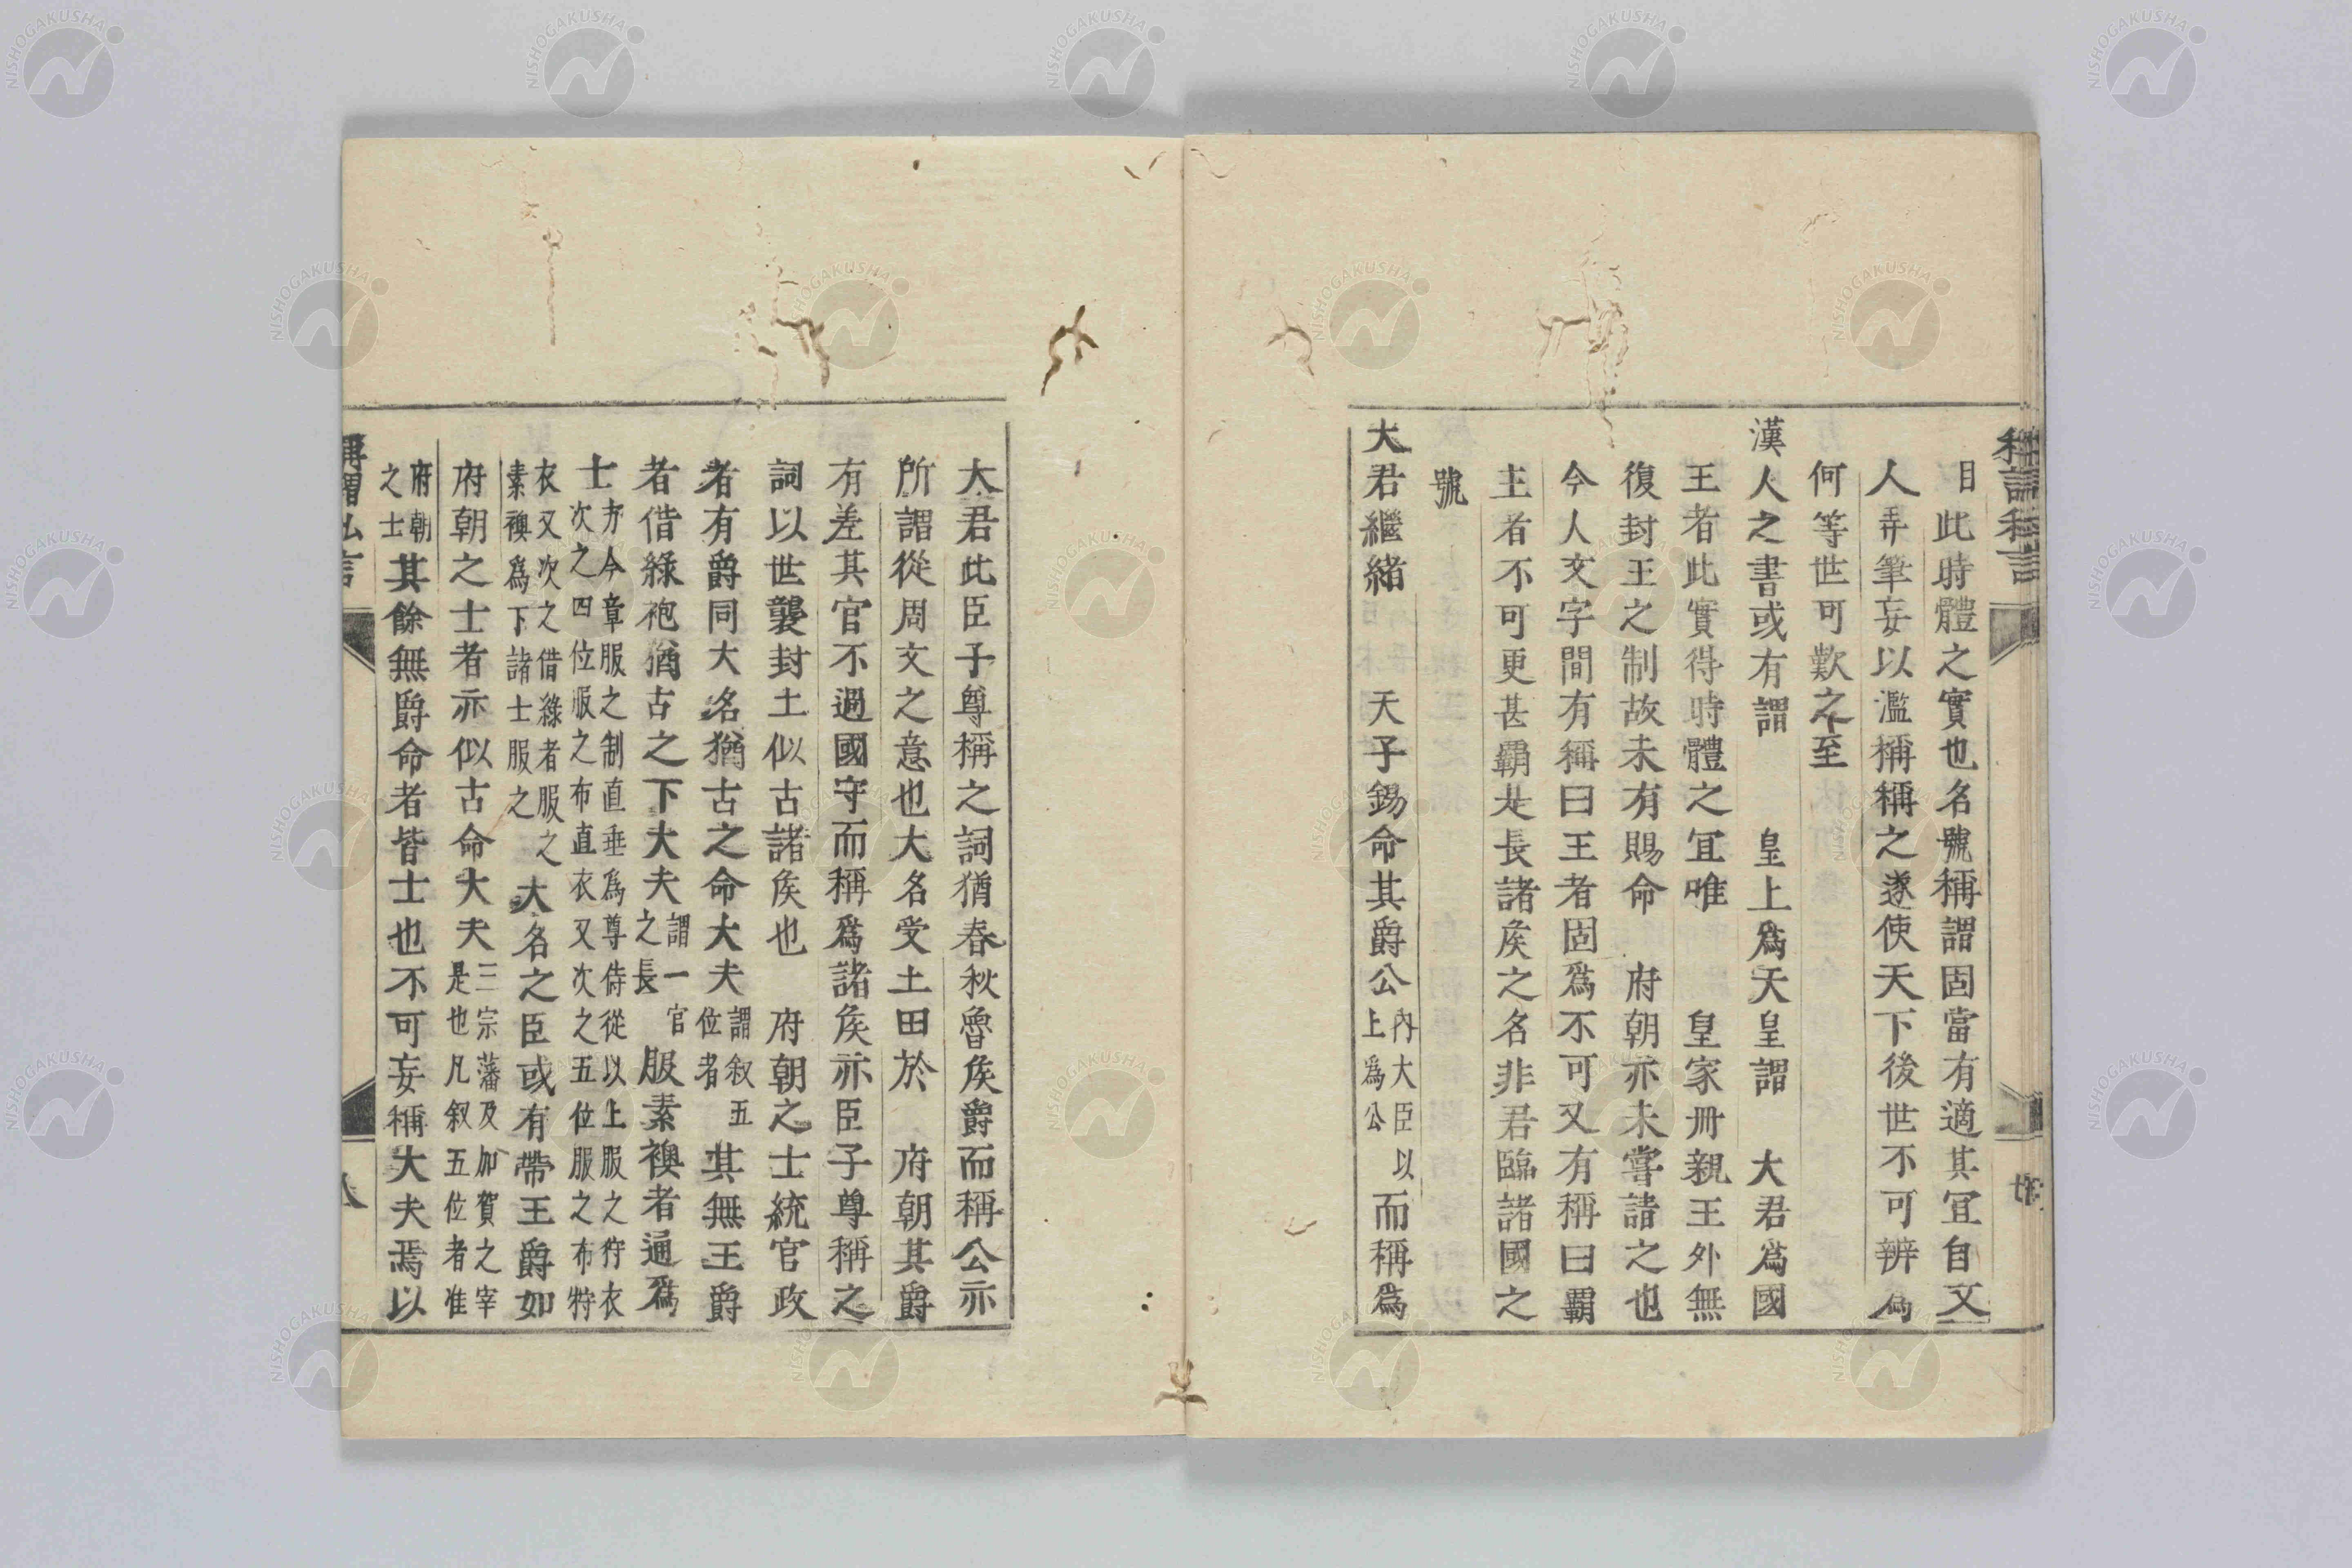 目此時體之實也名號稱謂固當有適其宜自文
人弄筆妄以濫稱稱之遂使天下後世不可辨爲
何等世可歎之至
漢人之書或有謂　皇上爲天皇謂　大君爲國
王者此實得時體之宜唯　皇家冊親王外無
復封王之制故未有賜命　府朝亦未嘗請之也
今人文字間有稱曰王者固爲不可又有稱曰覇
主者不可更甚覇是長諸矦之名非君臨諸國之
號
大君繼緒　天子錫命其爵公內大臣以上爲公而稱爲
大君此臣子尊稱之詞猶春秋魯矦爵而稱公亦
所謂從周文之意也大名受土田於　府朝其爵
有差其官不過國守而稱爲諸矦亦臣子尊稱之
詞以世襲封土似古諸矦也　府朝之士統官政
者有爵同大名猶古之命大夫謂叙五位者其無王爵
者借綠袍猶古之下大夫謂一官之長服素襖者通爲
士方今章服之制直垂爲尊侍從以上服之狩衣次之四位服之布直衣又次之五位服之布特
衣又次之借綠者服之素襖爲下諸士服之大名之臣或有帶王爵如
府朝之士者亦似古命大夫三宗藩及加賀之宰是也凡叙五位者准
府朝之士其餘無爵命者皆士也不可妄稱大夫焉以
八
NISHOGAKUSHA